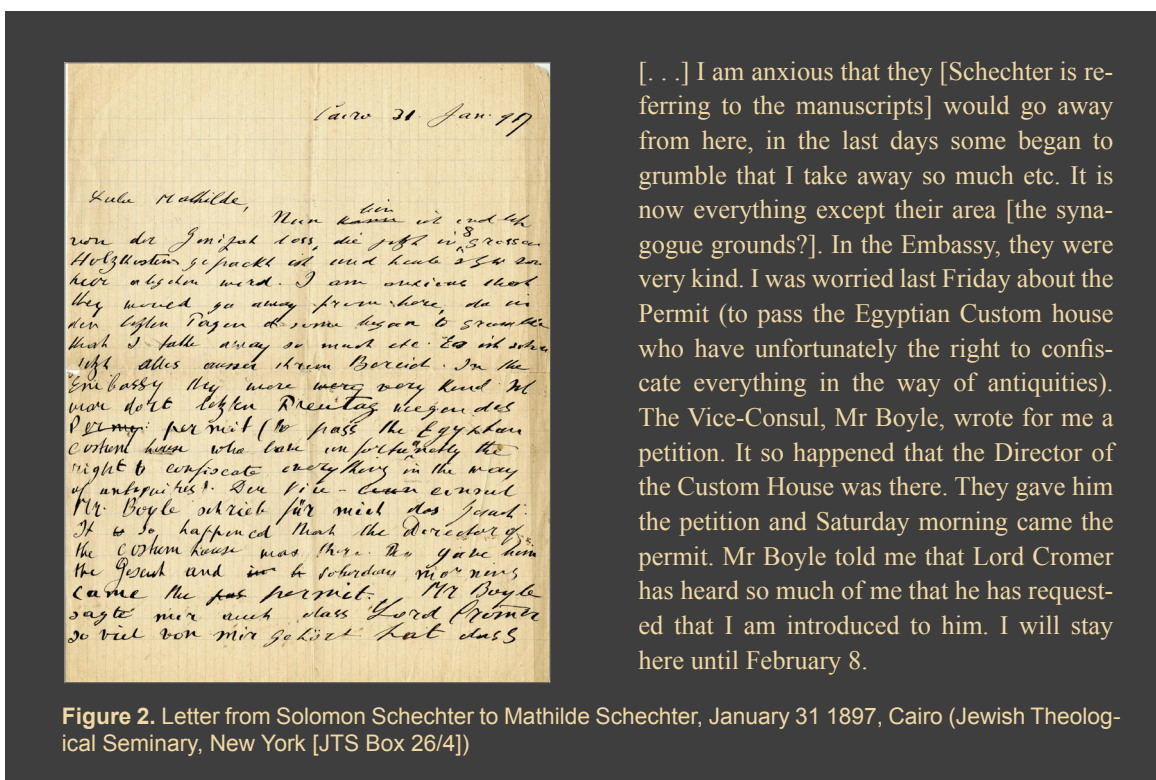 Cairo 31 Jan. 97
Liebe Mathilde,
Nun bin ich endlich
von der Genizah loss, die jetzt in 8 grossen
Holzkisten gepackt ist und heute von
hier abgehen werd. I am anxious that
they would go away from here, da in
den letzten Tagen some began to grumble
that I take away so much etc. Es ist schon
jetzt alles ausser ihrem Bereich. In the
Embassy they were very kind. Ich
war dort letzten Freitag wegen des
permit (to pass the Egyptian
costum house who have unfortunately the
right to confiscate everything in the way
of antiquities). Der Vice- consul
Mr. Boyle schrieb für mich das Gesuch.
It so happened that the Director of
the costum house was there. They gave him
the Gesuch and saturday morning
came the permit. Mr Boyle
sagte mir auch dass Lord Cromer
so viel von mir gehört hat dass
[. . .] I am anxious that they [Schechter is re-
ferring to the manuscripts] would go away
from here, in the last days some began to
grumble that I take away so much etc. It is
now everything except their area [the syna-
gogue grounds?]. In the Embassy, they were
very kind. I was worried last Friday about the
Permit (to pass the Egyptian Custom house
who have unfortunately the right to confis-
cate everything in the way of antiquities).
The Vice-Consul, Mr Boyle, wrote for me a
petition. It so happened that the Director of
the Custom House was there. They gave him
the petition and Saturday morning came the
permit. Mr Boyle told me that Lord Cromer
has heard so much of me that he has request-
ed that I am introduced to him. I will stay
here until February 8.
Figure 2. Letter from Solomon Schechter to Mathilde Schechter, January 31 1897, Cairo (Jewish Theolog-
ical Seminary, New York [JTS Box 26/4])